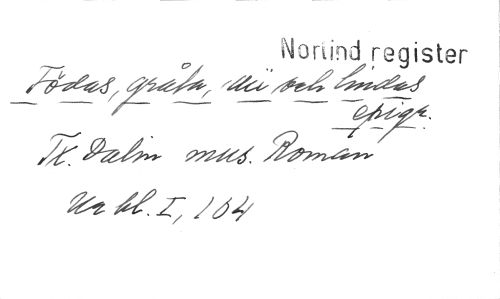 Norlind register
Födas, gråta, dii och lindas
epigr.
Tx. Dalin mus. Roman
Ur bl. I, 104